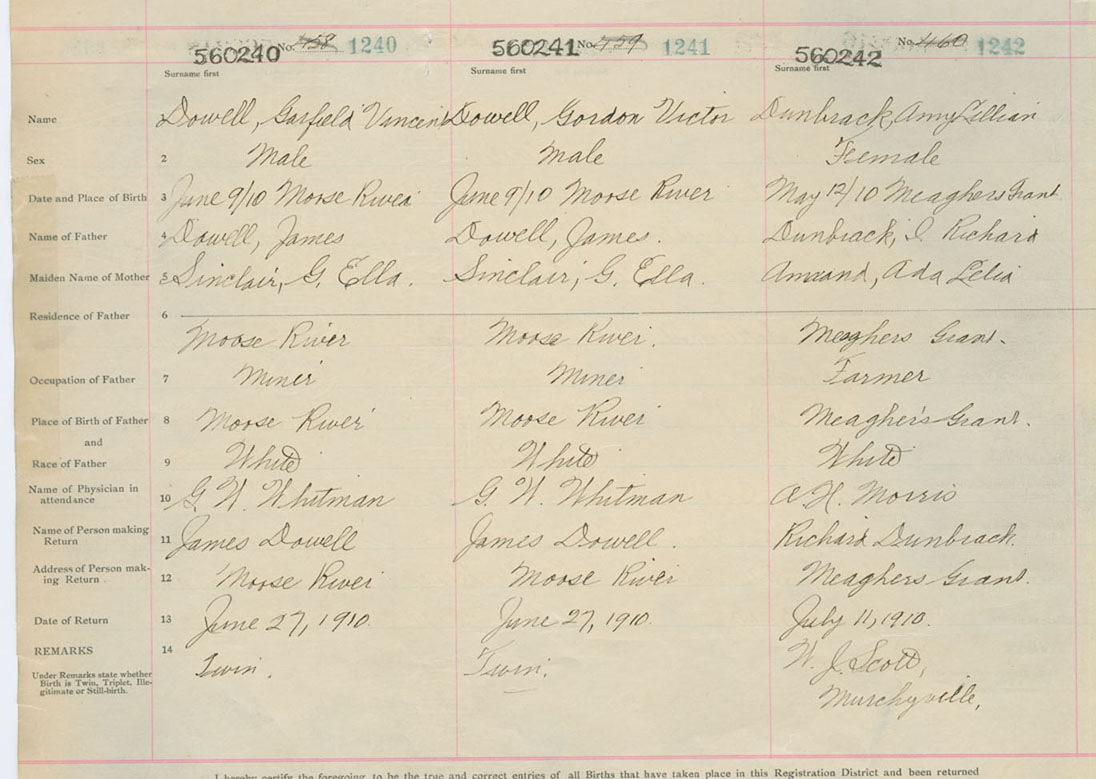 560240 No. 458 1240 560241 No. 459 1241 560242 No. 460 1242
Surname first Surname first Surname first
Name Dowell, Garfield Vincent Dowell, Gordon Victor Dunbrack, Amy Lillian
Sex 2 Male Male Female
Date and Place of Birth 3 June 9/10 Moose River June 9/10 Moose River May 12/10 Meaghers Grant
Name of Father 4 Dowell, James Dowell, James. Dunbrack, I. Richard
Maiden Name of Mother 5 Sinclair, G. Ella. Sinclair, G. Ella. Ada Lelia
Residence of Father 6
Moose River Moose River. Meaghers Grant.
Occupation of Father 7 Miner Miner Farmer
Place of Birth of Father 8 Moose River Moose River Meagher's Grant.
and
Race of Father 9 White White White
Name of Physician in
attendance 10 G. W. Whitman G. W. Whitman A H. Morris
Name of Person making
Return 11 James Dowell James Dowell. Richard Dunbrack.
Address of Person mak-
ing Return 12 Moose River Moose River Meaghers Grant.
Date of Return 13 June 27, 1910. June 27, 1910. July 11, 1910.
REMARKS 14 Twin. Twin. W. J. Scott,
Under Remarks state whether
Birth is Twin, Triplet, Ille-
gitimate or Still-birth.
Murchyville,
I hereby certify the foregoing to be the true and correct entries of all Births that have taken place in this Registration District and been returned